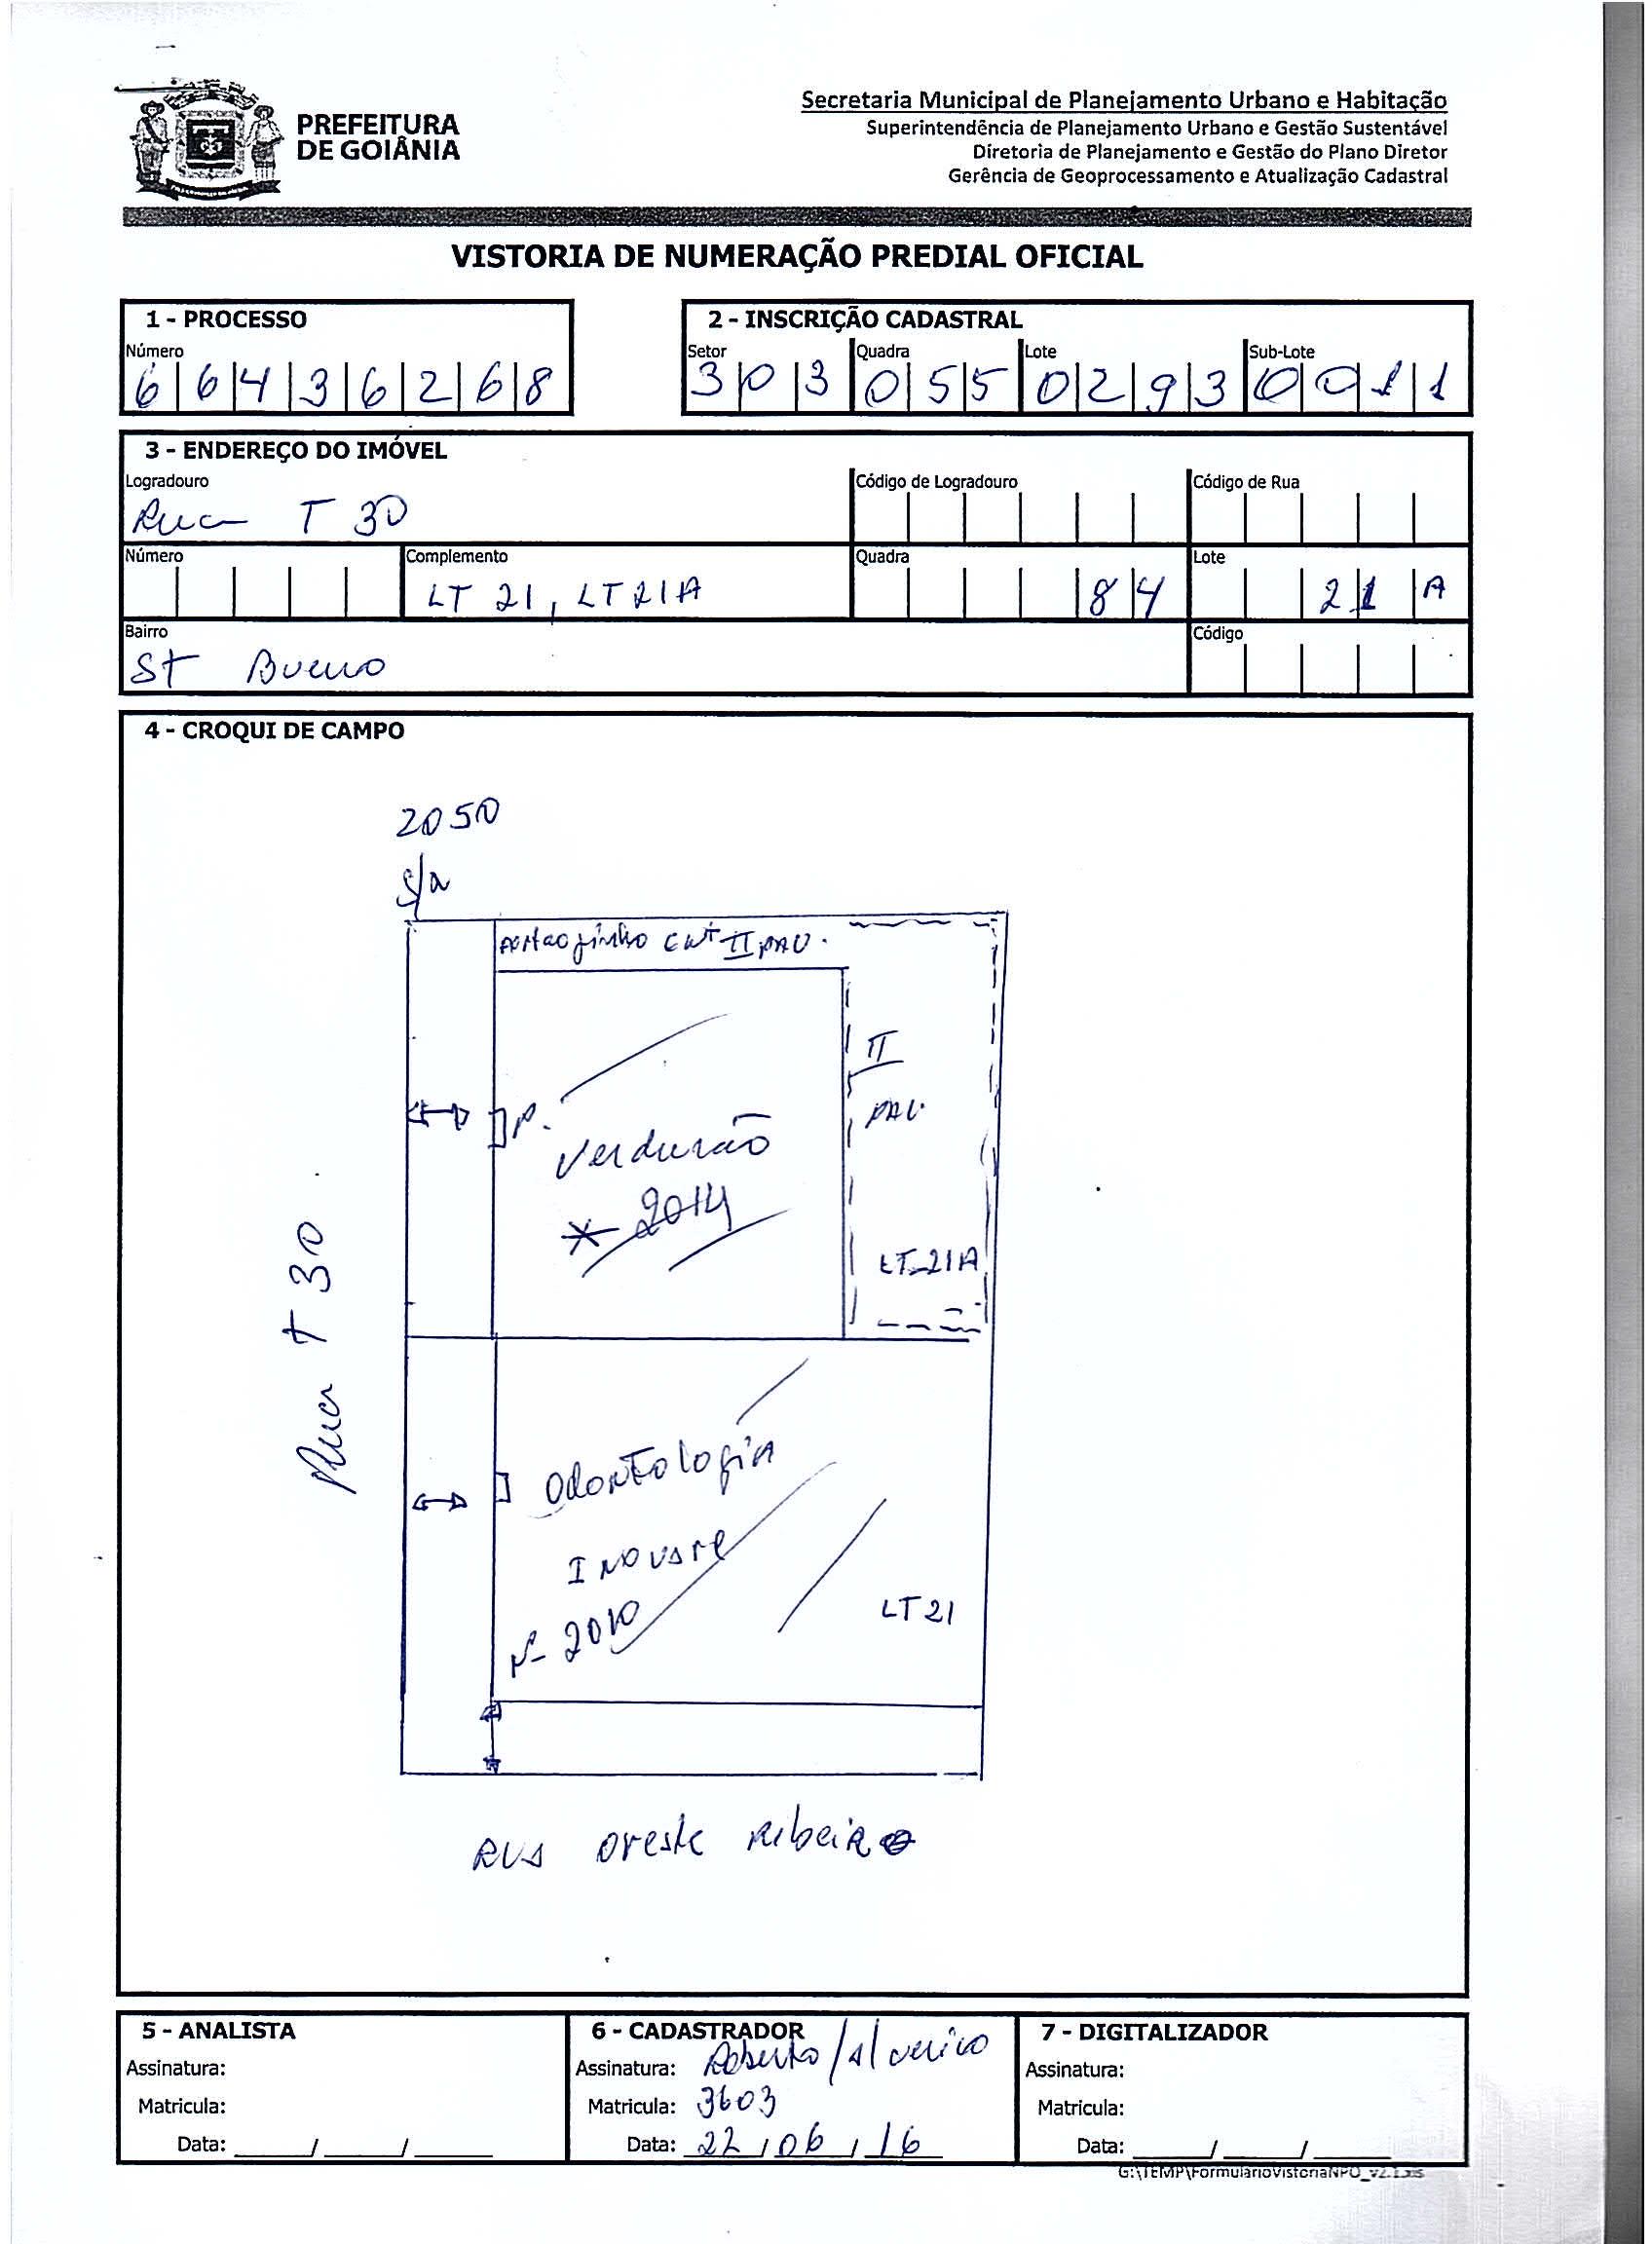 PREFEITURA
DE GOIÂNIA
Secretaria Municipal de Planejamento Urbano e Habitação
Superintendência de Planejamento Urbano e Gestão Sustentável
Diretoria de Planejamento e Gestão do Plano Diretor
Gerência de Geoprocessamento e Atualização Cadastral
VISTORIA DE NUMERAÇÃO PREDIAL OFICIAL
1 - PROCESSO
Número
6 6 4 3 6 2 6 8
2 - INSCRIÇÃO CADASTRAL
Setor Quadra Lote Sub-Lote
3 0 3 0 5 5 0 2 9 3 0 0 1 1
3 - ENDEREÇO DO IMÓVEL
Logradouro Código de Logradouro Código de Rua
Rua T 30
Número Complemento Quadra Lote
LT 21, LT 21A 8 4 2 1 A
Bairro Código
St Bueno
4 - CROQUI DE CAMPO
2050
II PAV.
II
PAV.
P.
Verdurão
2014
LT-21A
Rua T 30
Odontologia
Inovare
N- 2010
LT 21
RUA Oreste Ribeiro
5 - ANALISTA
Assinatura:
Matricula:
Data: / /
6 - CADASTRADOR
Assinatura: Roberto /
Matricula: 3603
Data: 22 / 06 / 16
7 - DIGITALIZADOR
Assinatura:
Matricula:
Data: / /
G:\TEMP\FormularioVistoriaNPO_v2.1.xls